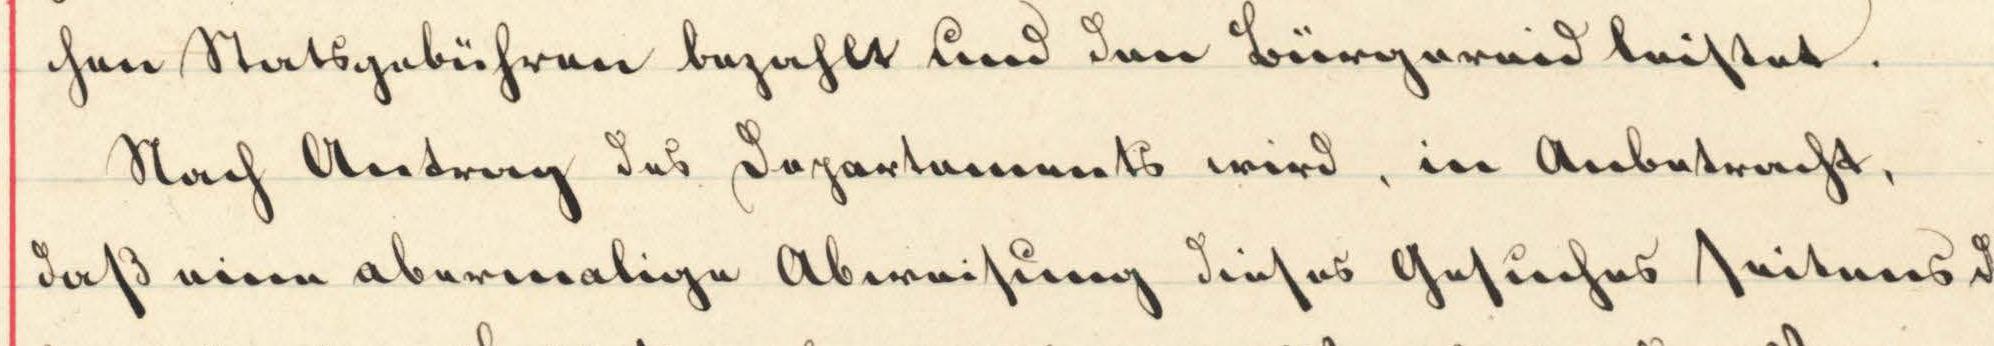 chen Statsgebühren bezahlt und den Bürgereid leistet.
Nach Antrag des Departements wird, in Anbetracht,
daß eine abermalige Abweisung dieses Gesuches Seitens